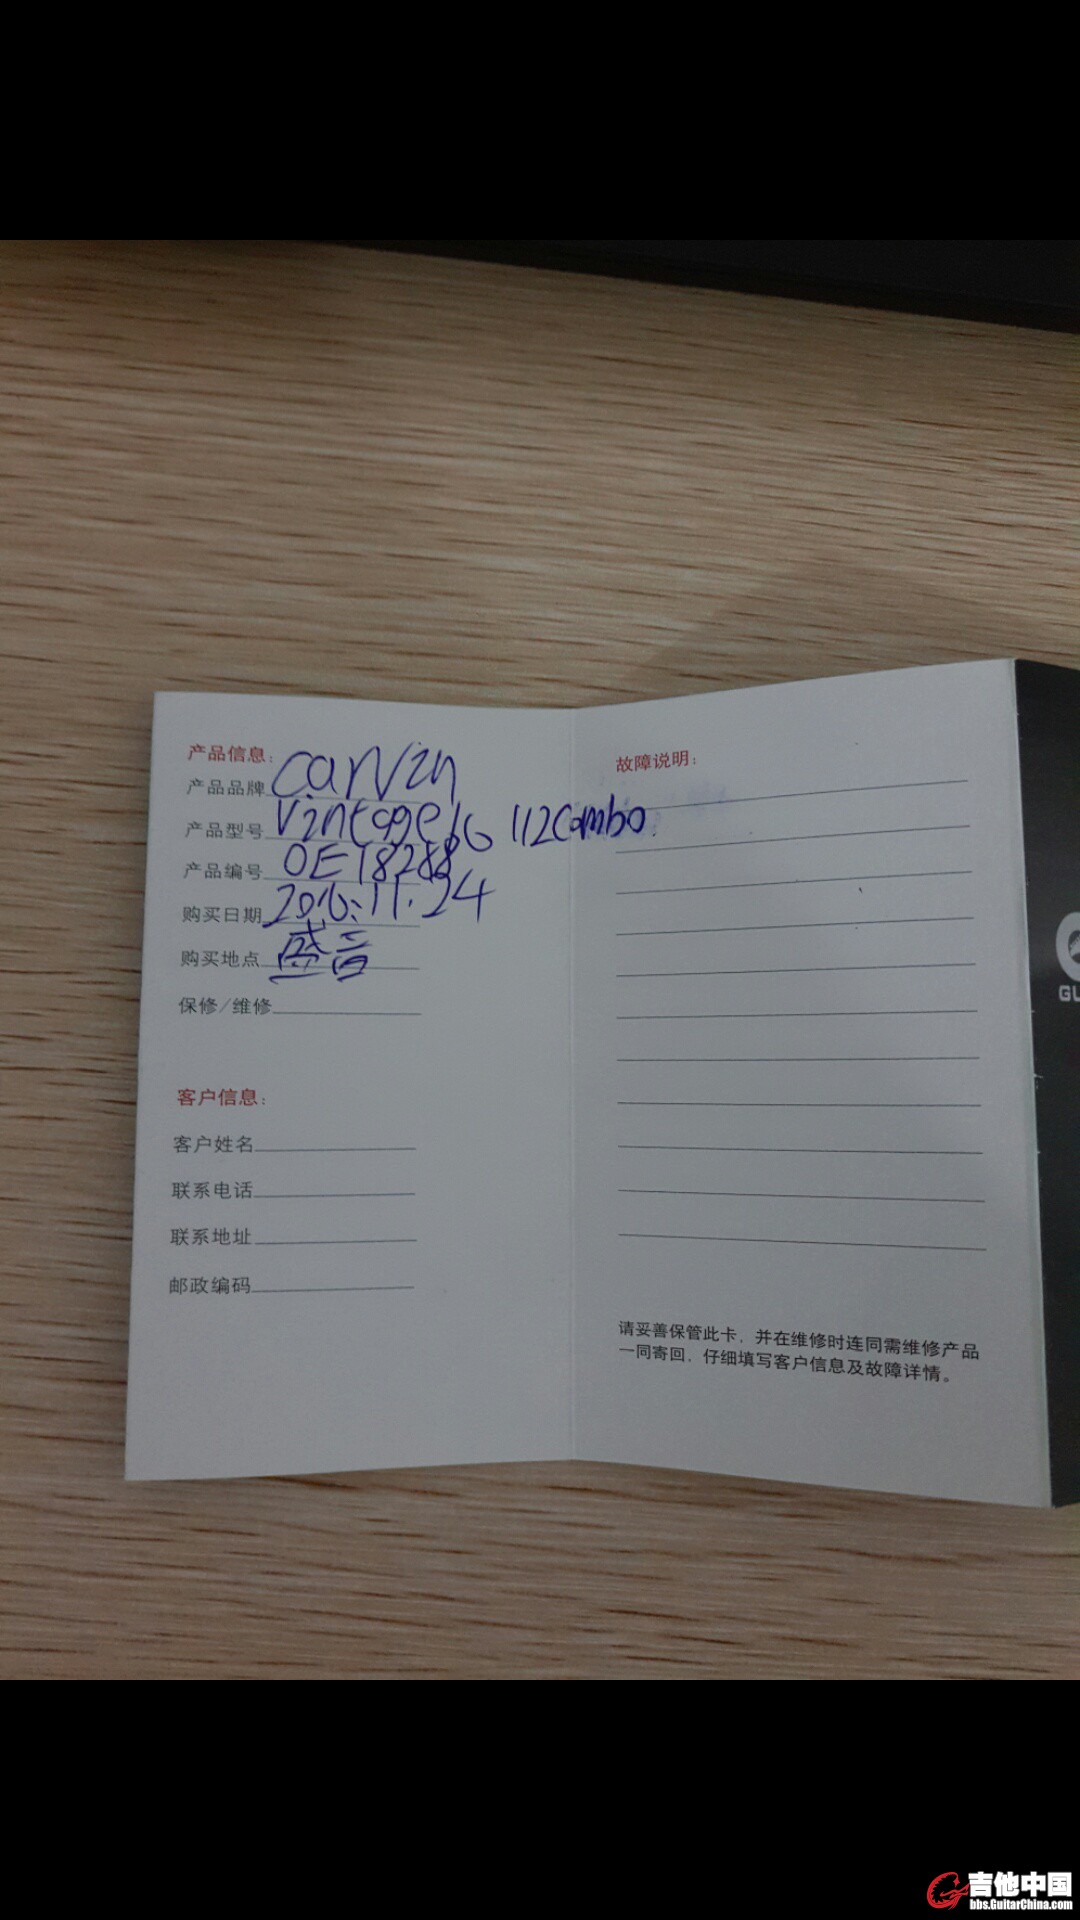 产品信息：
产品品牌 carvin
产品型号 Vintage 16 112combo.
产品编号 OE18288
购买日期 2016.11.24
购买地点 盛音
保修/维修
客户信息：
客户姓名
联系电话
联系地址
邮政编码
故障说明：
请妥善保管此卡，并在维修时连同需维修产品
一同寄回，仔细填写客户信息及故障详情。
GU
吉他中国
bbs.GuitarChina.com